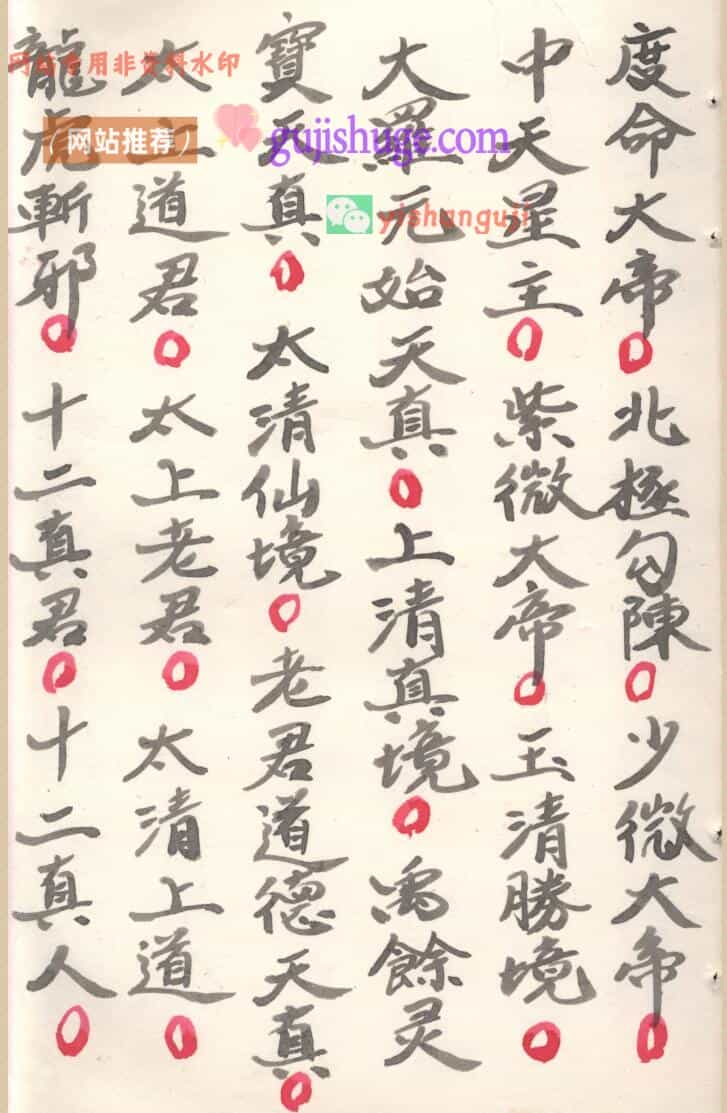 度命大帝○北極勾陳○少微大帝○
中天星主○紫微大帝○玉清勝境○
大羅元始天真○上清真境○禹餘灵
寶天真○太清仙境○老君道德天真○
太上道君○太上老君○太清上道○
龍虎斬邪○十二真君○十二真人○
网站专用非资料水印
（网站推荐）
gujishuge.com
yishanguji